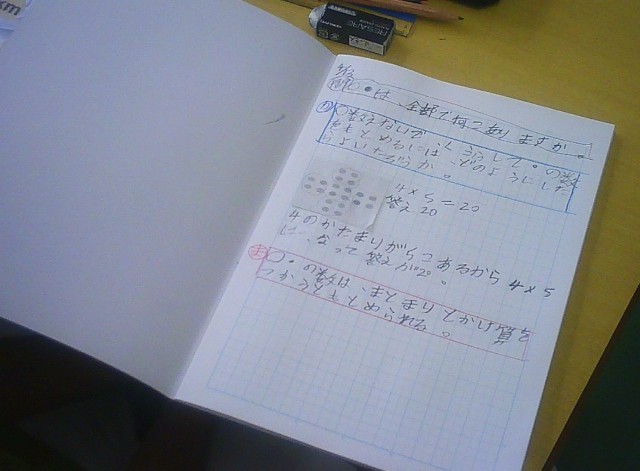 km
問 ●は、全部で何こありますか。
め 数えないでくふうして●の数
をもとめるには、どのようにした
らよいだろうか。
4×5=20
答え20
4のかたまりが5こあるから 4×5
になって答えが20。
ま ●の数は、まとまりとかけ算を
つかうともとめられる。